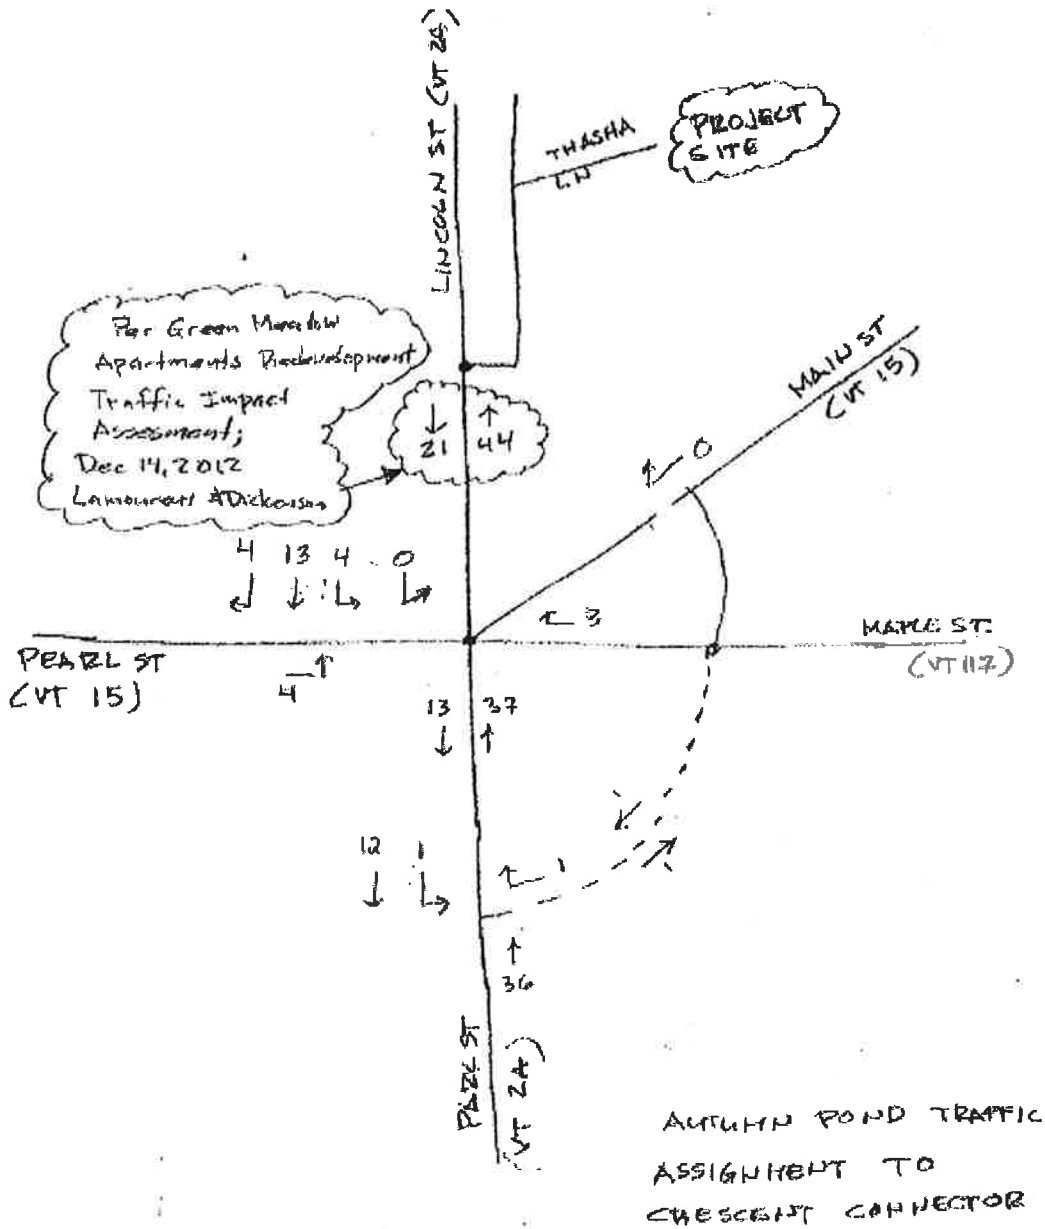 LINCOLN ST (VT 2A)
THASHA
LN
PROJECT
SITE
MAIN ST
(VT 15)
Per Green Meadow
Apartments Redevelopment
Traffic Impact
Assesment;
Dec 14, 2012
Lamoureux & Dickinson
21 44
0
4 13 4 0
3
PEARL ST
(VT 15)
4
MAPLE ST.
(VT 117)
13 37
12 1
1
36
PARK ST
(VT 2A)
AUTUMN POND TRAFFIC
ASSIGNMENT TO
CRESCENT CONNECTOR